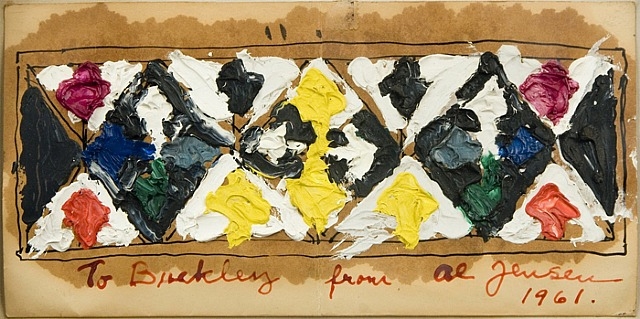 To Buckley from Al Jensen
1961.